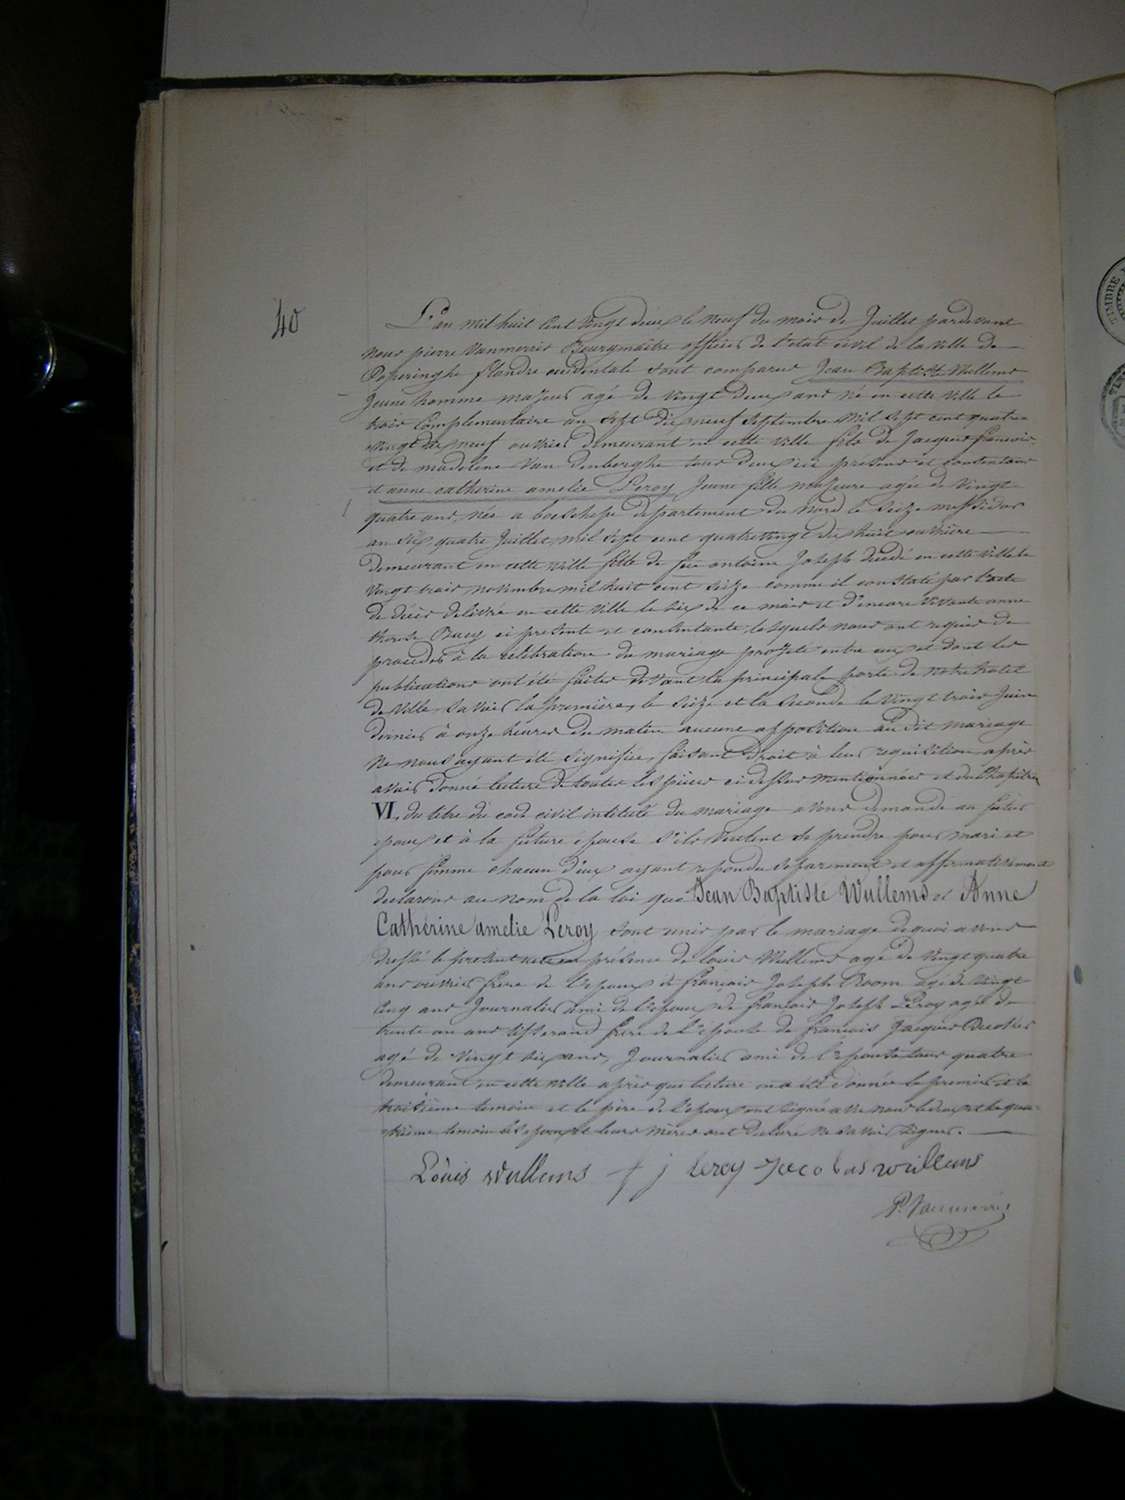 40
L'an mil huit cent vingt deux le neuf du mois de Juillet pardevant
nous pierre Vanmerris Bourgmaitre officier de l'etat civil de la ville de
Poperinghe flandre occidentale sont comparus Jean Baptiste Wullems
Jeune homme majeur agé de vingt deux ans né en cette ville le
trois complementaire an sept dix neuf septembre mil sept cent quatre
vingt dix neuf ouvrier demeurant en cette ville fils de Jacques francois
et de madeleine Van denberghe tous deux ici présens et contentans
et anne catherine amelie Leroy Jeune fille majeure agée de vingt
quatre ans, née a boeschepe departement du Nord le seize messidor
an six quatre Juillet mil sept cent quatrevingt dix huit ouvrière
demeurant en cette ville fille de feu antoine Joseph decédé en cette ville le
vingt trois novembre mil huit cent seize comme il constaté par l'acte
de décès delivré en cette ville le six de ce mois et d'encore vivante anne
therese ci presente et consentante, lesquels nous ont requis de
proceder à la celebration du mariage projeté entre eux et dont les
publications ont été faites devant la principale porte de notre hotel
de ville, savoir la première, le seize et la seconde le vingt trois Juin
dernier à onze heures du matin aucune opposition au dit mariage
ne nous ayant été signifiée, faisant droit à leur requisition après
avoir donné lecture de toutes les pièces ci dessus mentionnées et du chapitre
VI du titre du code civil intitulé du mariage avons demandé au futur
epoux et à la future epouse s'ils veulent se prendre pour mari et
pour femme chacun d'eux ayant repondu separement et affirmativement
declarons au nom de la loi que Jean Baptiste Wullems et Anne
Catherine amelie Leroy sont unis par le mariage de quoi avons
dressé le present acte en présence de louis Wullems agé de vingt quatre
ans ouvrier frère de l'epoux de françois Joseph Room agé de vingt
cinq ans Journalier ami de l'epoux de francois Joseph Leroy agé de
trente un ans tisserand frère de l'epouse de francois Jacques
agé de vingt six ans, Journalier ami de l'epouse tous quatre
demeurant en cette ville après que lecture en a été donnée le premier et le
troisième temoin et le père de l'epoux ont signé avec nous le deux et le qua-
trième temoin les epoux et leurs mères ont declaré ne savoir signer.
Louis Wullems f j leroy Jacobus wullems
P. Vanmerris
TIMBRE